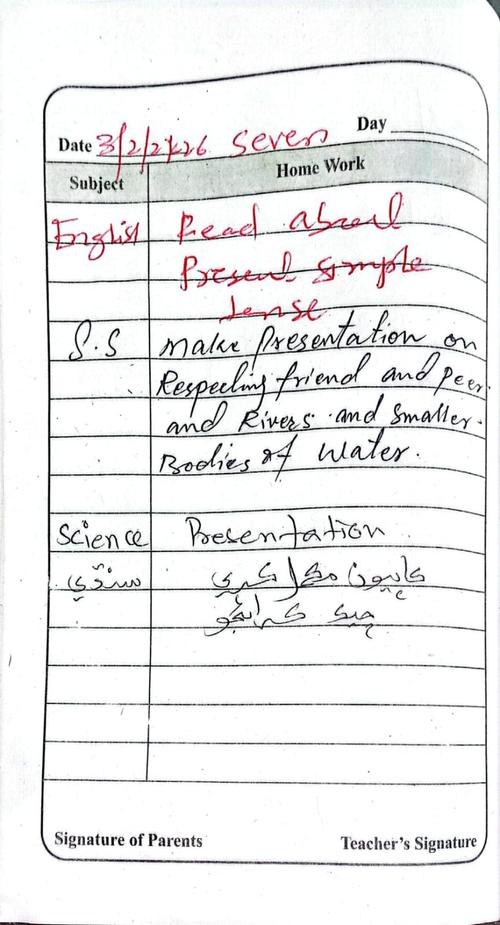 Day
Date 3/2/2026 seven
Subject Home Work
English Read about
Present simple
tense
S.S make Presentation on
Respecting friend and peer
and Rivers and Smaller
Bodies of Water.
Science Presentation
سنڌي ڪاپيون مڪمل ڪري
چيڪ ڪرائجو
Signature of Parents Teacher's Signature